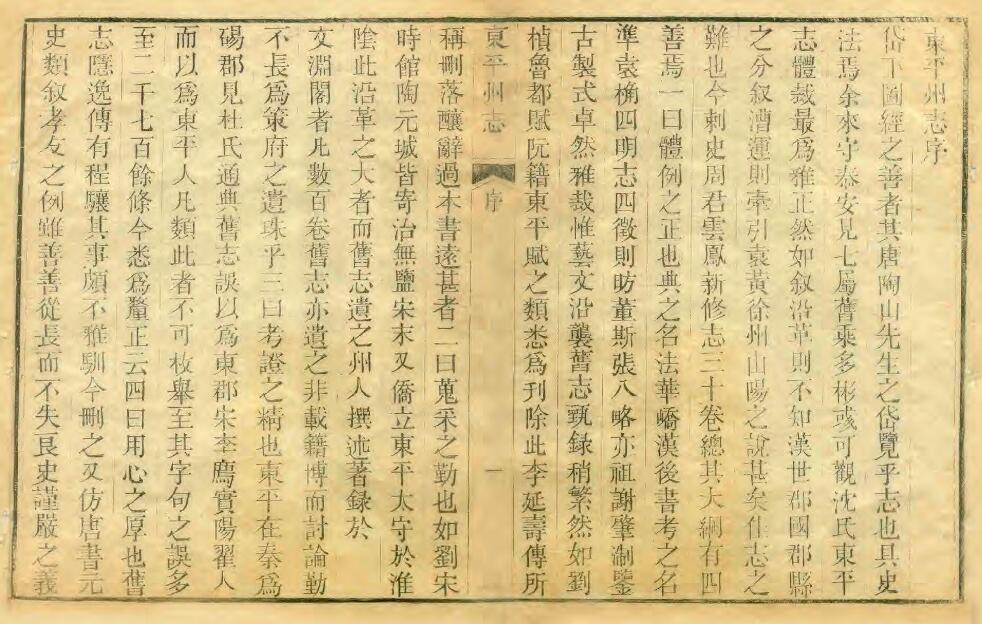 東平州志序
岱下圖經之善者其唐陶山先生之岱覽乎志也具史
法焉余來守泰安見七屬舊乘多彬彧可觀沈氏東平
志體裁最爲雅正然如叙沿革則不知漢世郡國郡縣
之分叙漕運則牽引袁黃徐州山陽之說甚矣佳志之
難也今刺史周君雲鳳新修志三十卷總其大綱有四
善焉一曰體例之正也典之名法華嶠漢後書考之名
準袁桷四明志四徵則昉董斯張八略亦祖謝肇淛鑒
古製式卓然雅裁惟藝文沿襲舊志甄録稍繁然如劉
楨魯都賦阮籍東平賦之類悉爲刊除此李延壽傳所
東平州志
序
一
稱刪落釀辭過本書遠甚者二曰蒐采之勤也如劉宋
時館陶元城皆寄治無鹽宋末又僑立東平太守於淮
陰此沿革之大者而舊志遺之州人撰述著録於
文淵閣者凡數百卷舊志亦遺之非載籍博而討論勤
不長爲策府之遺珠乎三曰考證之精也東平在秦爲
碭郡見杜氏通典舊志誤以爲東郡宋李廌實陽翟人
而以爲東平人凡類此者不可枚舉至其字句之誤多
至二千七百餘條今悉爲釐正云四曰用心之厚也舊
志隱逸傳有程驤其事頗不雅馴今刪之又仿唐書元
史類叙孝友之例雖善善從長而不失良史謹嚴之義